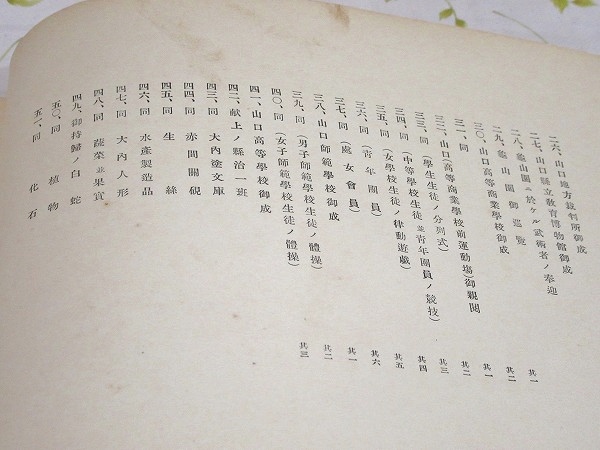 二六、山口地方裁判所御成
二七、山口縣立教育博物館御成
二八、龜山園ニ於ケル武術者ノ奉迎　其一
二九、龜山園御巡覽　其二
三〇、山口高等商業學校御成　其一
三一、同　其二
三二、山口(高等商業學校前運動場)御親閲　其三
三三、同　(學生生徒ノ分列式)　其四
三四、同　(中等學校生徒並靑年團員ノ競技)　其五
三五、同　(女學校生徒ノ律動遊戲)　其六
三六、同　(靑年團員)
三七、同　(處女會員)　其一
三八、山口師範學校御成　其二
三九、同　(男子師範學校生徒ノ體操)　其三
四〇、同　(女子師範學校生徒ノ體操)
四一、山口高等學校御成
四二、獻上ノ縣治一班
四三、同　大内塗文庫
四四、同　赤間關硯
四五、同　生絲
四六、同　水產製造品
四七、同　大内人形
四八、同　蔬菜並果實
四九、御持歸ノ白蛇
五〇、同　植物
五一、同　化石